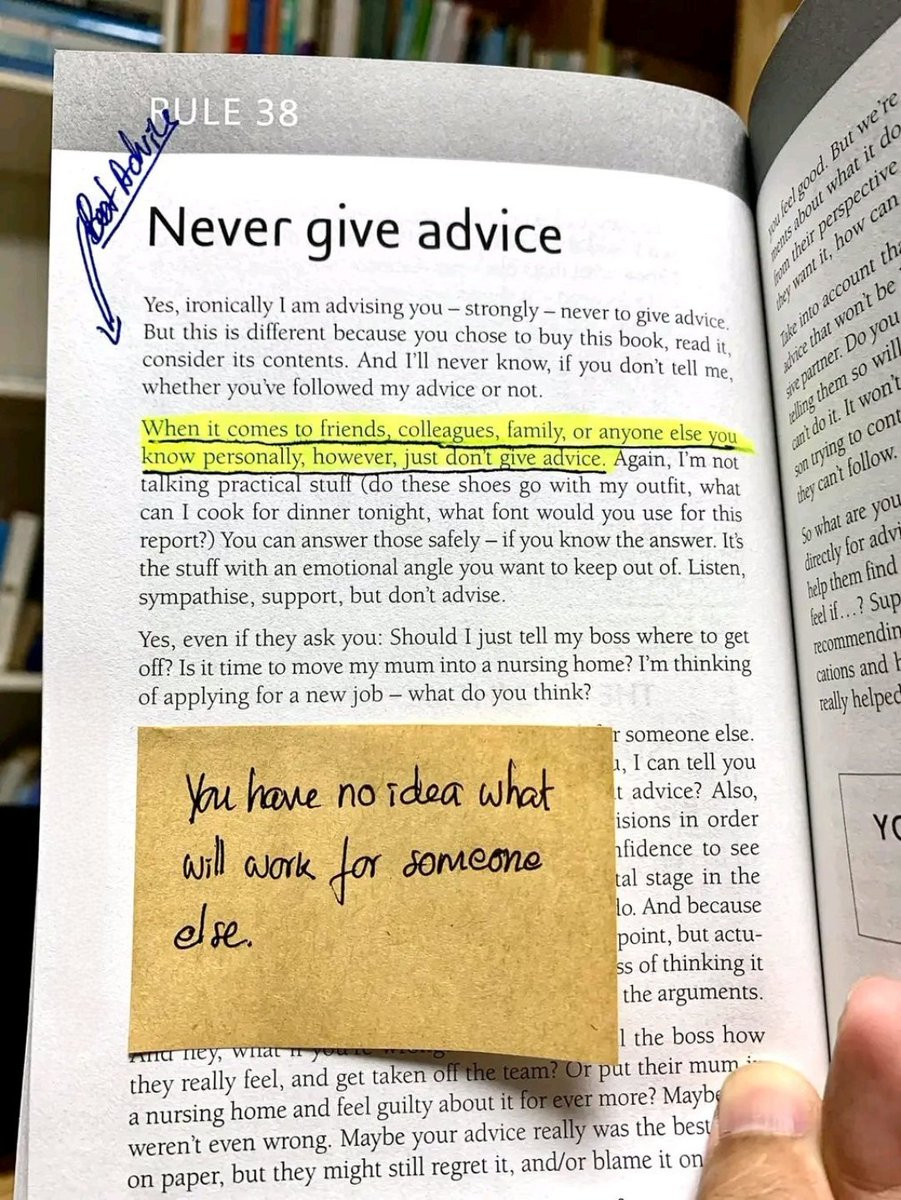 RULE 38
Best Advice
Never give advice
Yes, ironically I am advising you – strongly – never to give advice.
But this is different because you chose to buy this book, read it,
consider its contents. And I'll never know, if you don't tell me,
whether you've followed my advice or not.
When it comes to friends, colleagues, family, or anyone else you
know personally, however, just don't give advice. Again, I'm not
talking practical stuff (do these shoes go with my outfit, what
can I cook for dinner tonight, what font would you use for this
report?) You can answer those safely – if you know the answer. It's
the stuff with an emotional angle you want to keep out of. Listen,
sympathise, support, but don't advise.
Yes, even if they ask you: Should I just tell my boss where to get
off? Is it time to move my mum into a nursing home? I'm thinking
of applying for a new job – what do you think?
r someone else.
, I can tell you
t advice? Also,
isions in order
nfidence to see
tal stage in the
lo. And because
point, but actu-
ss of thinking it
the arguments.
You have no idea what
will work for someone
else.
l the boss how
they really feel, and get taken off the team? Or put their mum
a nursing home and feel guilty about it for ever more? Maybe
weren't even wrong. Maybe your advice really was the best
on paper, but they might still regret it, and/or blame it on
you feel good. But we're
ments about what it do
from their perspective
they want it, how can
Take into account tha
advice that won't be
sive partner. Do you
telling them so will
can't do it. It won't
son trying to cont
they can't follow.
So what are you
directly for advi
help them find
feel if…? Sup
recommendin
cations and h
really helped
YO